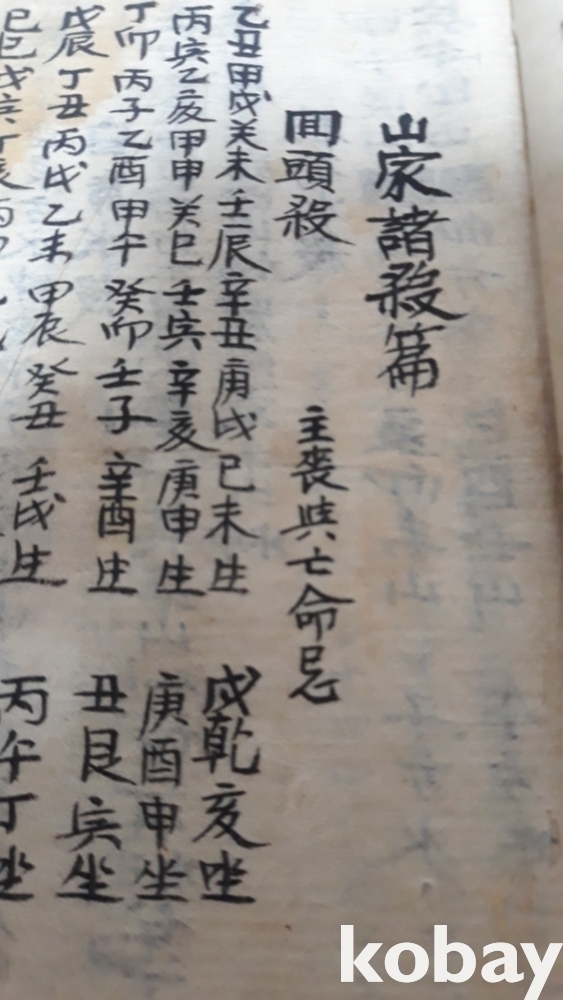 山家諸殺篇
囬頭殺 主喪與亡命忌
乙丑甲戌癸未壬辰辛丑庚戌己未生 戌乾亥坐
丙寅乙亥甲申癸巳壬寅辛亥庚申生 庚酉申坐
丁卯丙子乙酉甲午癸卯壬子辛酉生 丑艮寅坐
戊辰丁丑丙戌乙未甲辰癸丑壬戌生 丙午丁坐
己巳戊寅丁亥丙
kobay